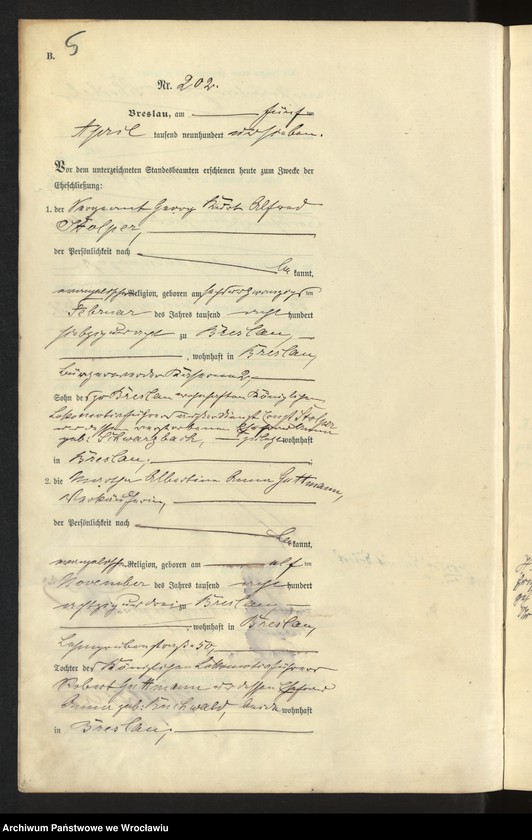 B.
5
Nr. 202.
Breslau, am fünf
April tausend neunhundert und sieben.
Vor dem unterzeichneten Standesbeamten erschienen heute zum Zwecke der
Eheschließung:
1. der Sergeant Georg Alfred
Stolper,
der Persönlichkeit nach
be kannt,
evangelischer Religion, geboren am sechsundzwanzigs
Februar des Jahres tausend acht hundert
zu Breslau,
, wohnhaft in Breslau,
Bürgerwerder Kaserne 2,
Sohn des zu Breslau wohnhaften Königlichen
Lokomotivführers außer Dienst Stolper
und dessen verstorbenen Ehefrau
geb. Schwarzbach, zuletzt wohnhaft
in Breslau.
2. die Martha Albertine Anna Guttmann,
Verkäuferin,
der Persönlichkeit nach
be kannt,
evangelischer Religion, geboren am elf
November des Jahres tausend acht hundert
achtzig und drei zu Breslau
, wohnhaft in Breslau,
Lehmgrubenstraße 50,
Tochter des Königlichen Lokomotivführers
Robert Guttmann und dessen Ehefrau
Anna geb. Buchwald, beide wohnhaft
in Breslau.
Archiwum Państwowe we Wrocławiu